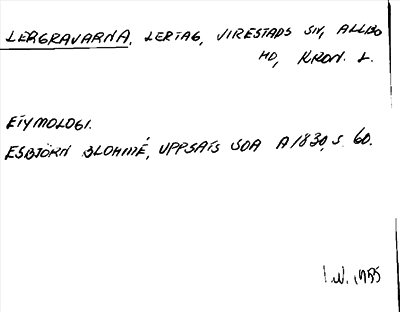 LERGRAVARNA, LERTAG, VIRESTADS SN, ALLBO
HD, KRON. L.
ETYMOLOGI.
ESBJÖRN BLOHMÉ, UPPSATS SOA A 1830, S. 60.
1955